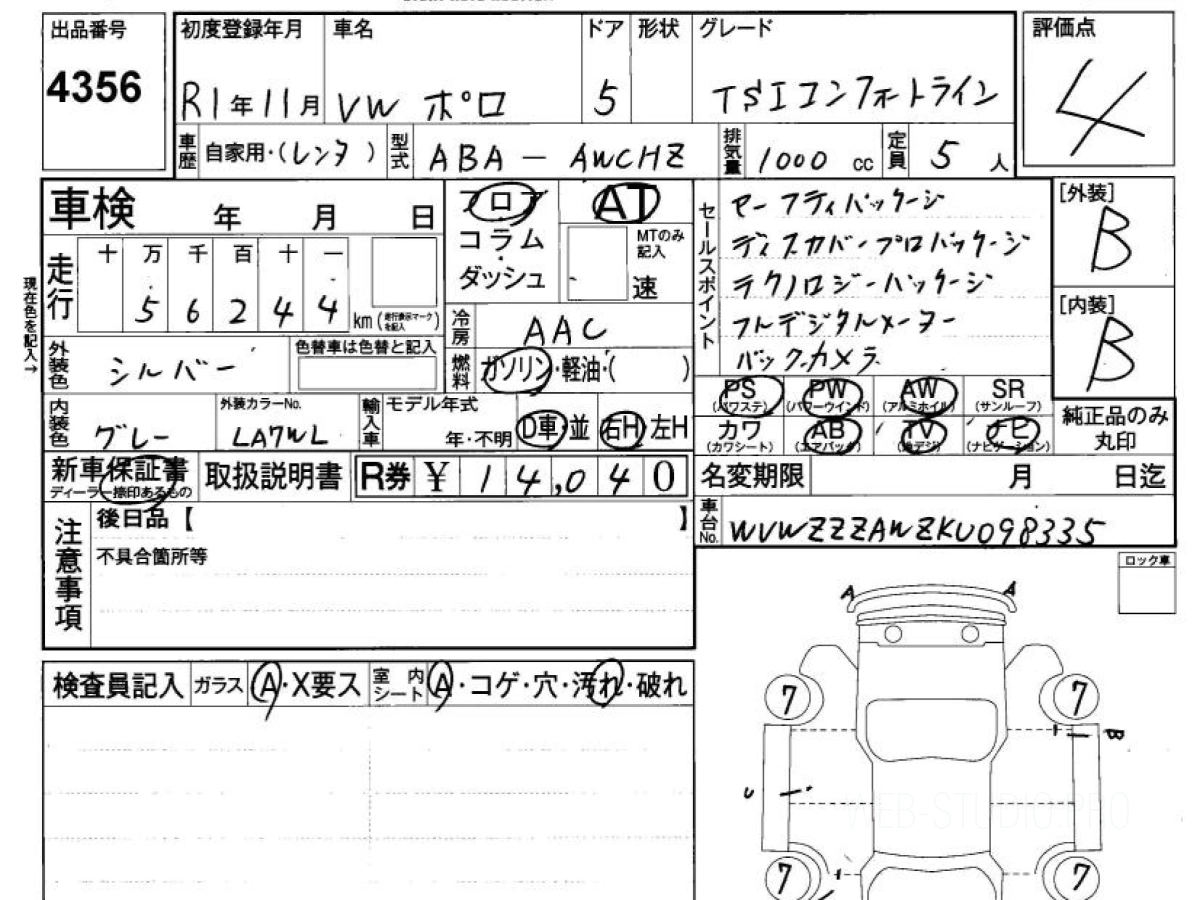 出品番号 初度登録年月 車名 ドア 形状 グレード 評価点
4356 R1年11月 VW ポロ 5 TSIコンフォートライン 4
車歴 自家用・(レンタ) 型式 ABA-AWCHZ 排気量 1000 cc 定員 5 人
車検 年 月 日 フロア AT セールスポイント セーフティパッケージ [外装] B
走行 十 万 千 百 十 一 コラム MTのみ記入 ディスカバープロパッケージ
5 6 2 4 4 km (走行表示マークを記入) ダッシュ 速 テクノロジーパッケージ [内装] B
現在色を記入→ 冷房 AAC フルデジタルメーター
外装色 シルバー 色替車は色替と記入 燃料 ガソリン・軽油・( ) バックカメラ
PS (パワステ) PW (パワーウインド) AW (アルミホイル) SR (サンルーフ) 純正品のみ丸印
内装色 グレー 外装カラーNo. LA7WL 輸入車 モデル年式 年・不明 D車・並 右H・左H カワ (カワシート) AB (エアバック) TV (地デジ) ナビ (ナビゲーション)
新車保証書 ディーラー捺印あるもの 取扱説明書 R券 ¥ 14,040 名変期限 月 日迄
注意事項 後日品【 】 車台No. WVWZZZAWZKU098335
不具合箇所等 ロック車
A A
検査員記入 ガラス A・X要ス 室内シート A・コゲ・穴・汚れ・破れ
7 7
B
U
WEB-STUDIO.PRO
7 7